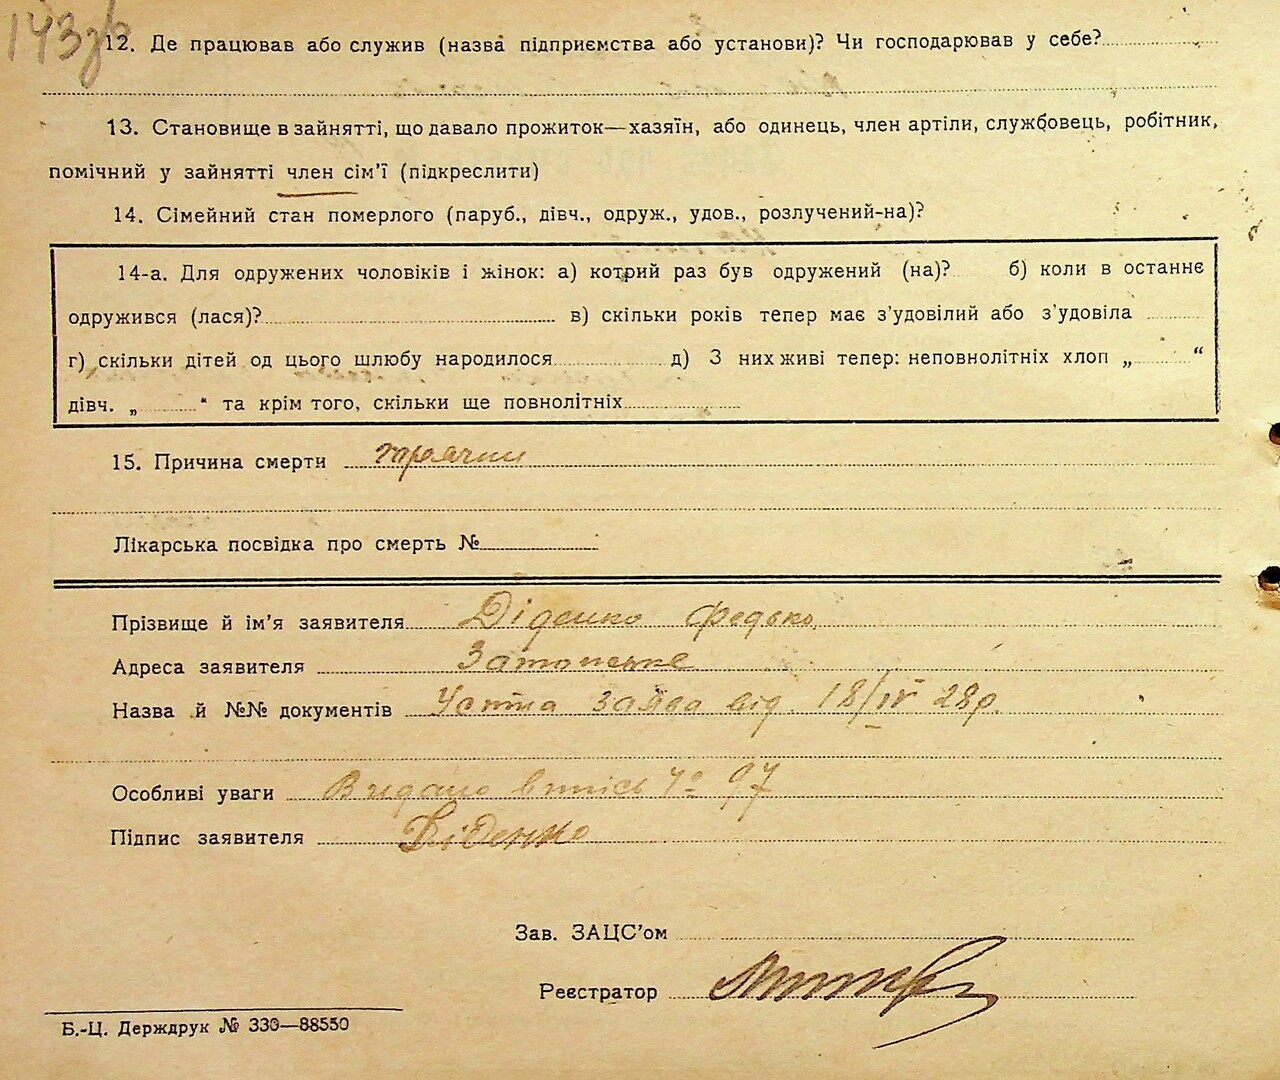 143зв
12. Де працював або служив (назва підприємства або установи)? Чи господарював у себе?
13. Становище в зайнятті, що давало прожиток—хазяїн, або одинець, член артіли, службовець, робітник,
помічний у зайнятті член сім’ї (підкреслити)
14. Сімейний стан померлого (паруб., дівч., одруж., удов., розлучений-на)?
14-а. Для одружених чоловіків і жінок: а) котрий раз був одружений (на)? б) коли в останнє
одружився (лася)? в) скільки років тепер має з’удовілий або з’удовіла
г) скільки дітей од цього шлюбу народилося д) З них живі тепер: неповнолітніх хлоп „ “
дівч. „ “ та крім того, скільки ще повнолітніх
15. Причина смерти
Лікарська посвідка про смерть №
Прізвище й ім’я заявителя Діденко Федько
Адреса заявителя Затонське
Назва й №№ документів Устна заява від 18/IV 28р.
Особливі уваги Видано випись № 97
Підпис заявителя Діденко
Зав. ЗАЦС’ом
Реєстратор
Б.-Ц. Держдрук № 330—88550